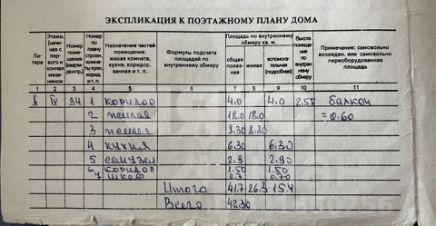 ЭКСПЛИКАЦИЯ К ПОЭТАЖНОМУ ПЛАНУ ДОМА
Ли-тера Этажи, (начиная с первого) и кончая мезонином Номер помещения Номер по плану Назначение частей помещения: жилая комната, кухня, коридор, ванная и т. п. Формулы подсчета площадей по внутреннему обмеру Площадь по внутреннему обмеру кв. м. общая полезная жилая вспомогательная (подсобная) Высота помещения по внутреннему обмеру Примечание: самовольно возведен. или самовольно переоборудованная площадь
1 2 3 4 5 6 7 8 9 10 11
IV 34 1 коридор 4.0 4.0 2.55 балкон
2 жилая 18.0 18.0 = 0.60
3 жилая 8.30 8.30
4 кухня 6.30 6.30
5 санузел 2.9 2.90
6 коридор 1.50 1.50
7 шкаф 0.7 0.70
Итого 41.7 26.3 15.4
Всего 42.30